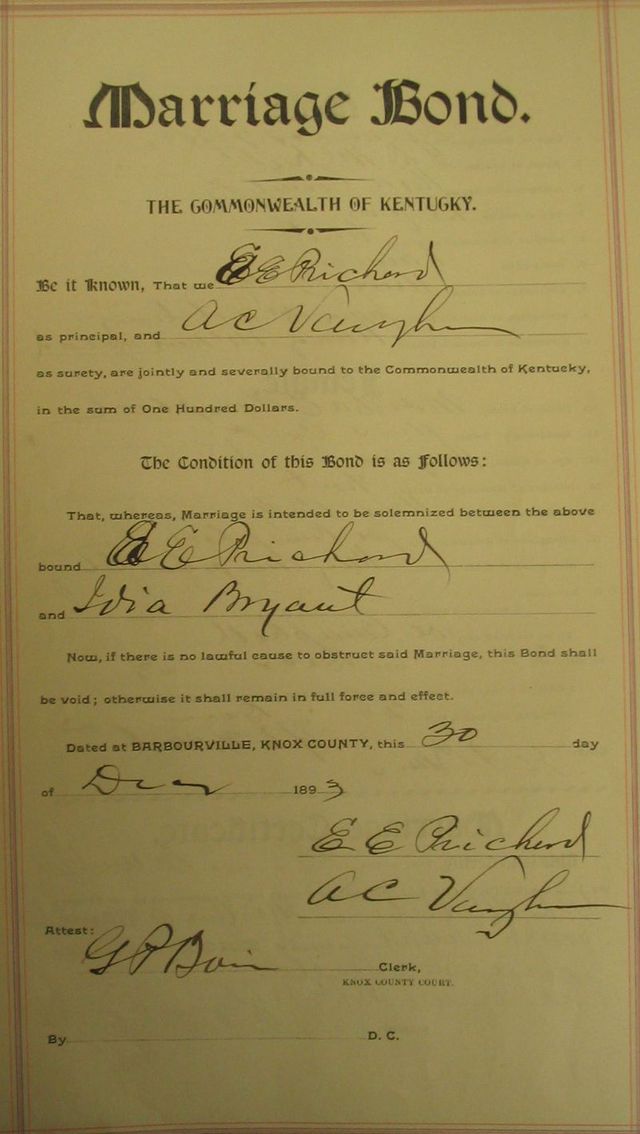 Marriage Bond.
THE COMMONWEALTH OF KENTUCKY.
Be it Known, That we E E Prichard
as principal, and A C Vaughn
as surety, are jointly and severally bound to the Commonwealth of Kentucky,
in the sum of One Hundred Dollars.
The Condition of this Bond is as Follows:
That, whereas, Marriage is intended to be solemnized between the above
bound E E Prichard
and Idia Bryant
Now, if there is no lawful cause to obstruct said Marriage, this Bond shall
be void; otherwise it shall remain in full force and effect.
Dated at BARBOURVILLE, KNOX COUNTY, this 30 day
of 1893
E E Prichard
A C Vaughn
Attest:
G P Clerk,
KNOX COUNTY COURT.
By D. C.